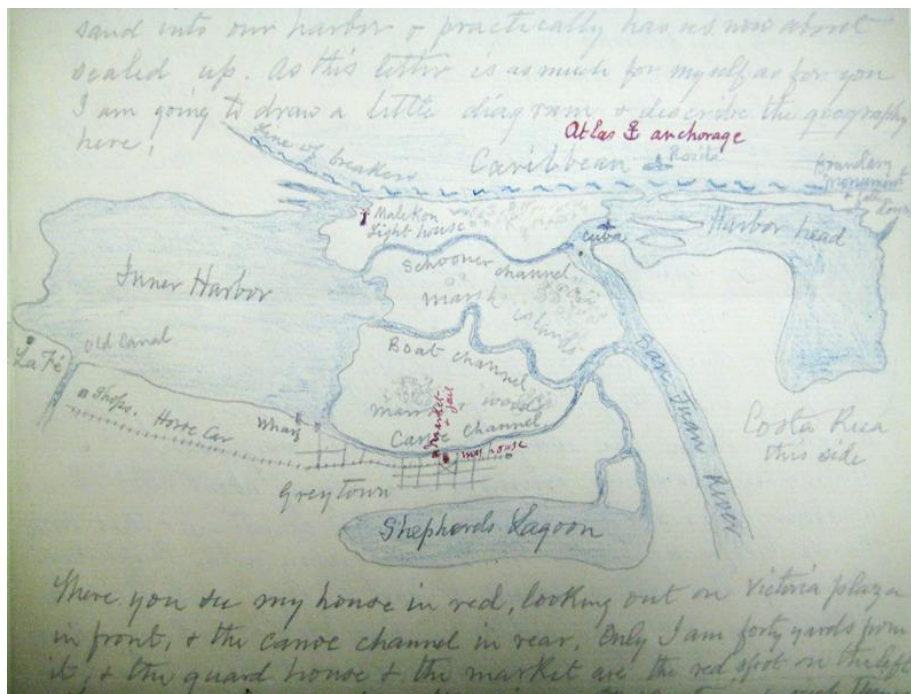 sand into our harbor & practically has us now about
sealed up. As this letter is as much for myself as for you
I am going to draw a little diagram & describe the geography
here.
Atlas anchorage
Line of breakers
Caribbean
Rosita
Boundary
Monument
Malekon
Light house
Cuba
Harbor head
Inner Harbor
Schooner channel
marsh
islands
Old Canal
La Fé
Boat channel
San Juan River
Shops.
Horse Car
Wharf
marsh & woods
Market
& jail
Canoe channel
my house
Costa Rica
this side
Greytown
Shepherds Lagoon
There you see my house in red, looking out on Victoria plaza
in front, & the canoe channel in rear. Only I am forty yards from
it, & the guard house & the market are the red spot on the left